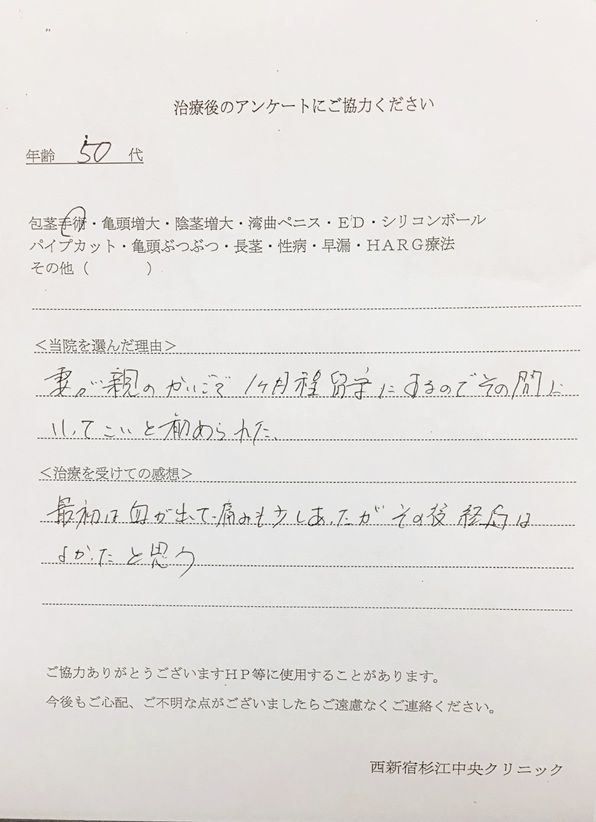 治療後のアンケートにご協力ください
年齢 50 代
包茎手術・亀頭増大・陰茎増大・湾曲ペニス・ＥＤ・シリコンボール
パイプカット・亀頭ぶつぶつ・長茎・性病・早漏・ＨＡＲＧ療法
その他（　　　　）
＜当院を選んだ理由＞
妻が親のかいごで1ヶ月程留守にするのでその間に
いってこいと勧められた、
＜治療を受けての感想＞
最初は血が出て痛みも少しあったがその後経過は
よかったと思う
ご協力ありがとうございますＨＰ等に使用することがあります。
今後もご心配、ご不明な点がございましたらご遠慮なくご連絡ください。
西新宿杉江中央クリニック